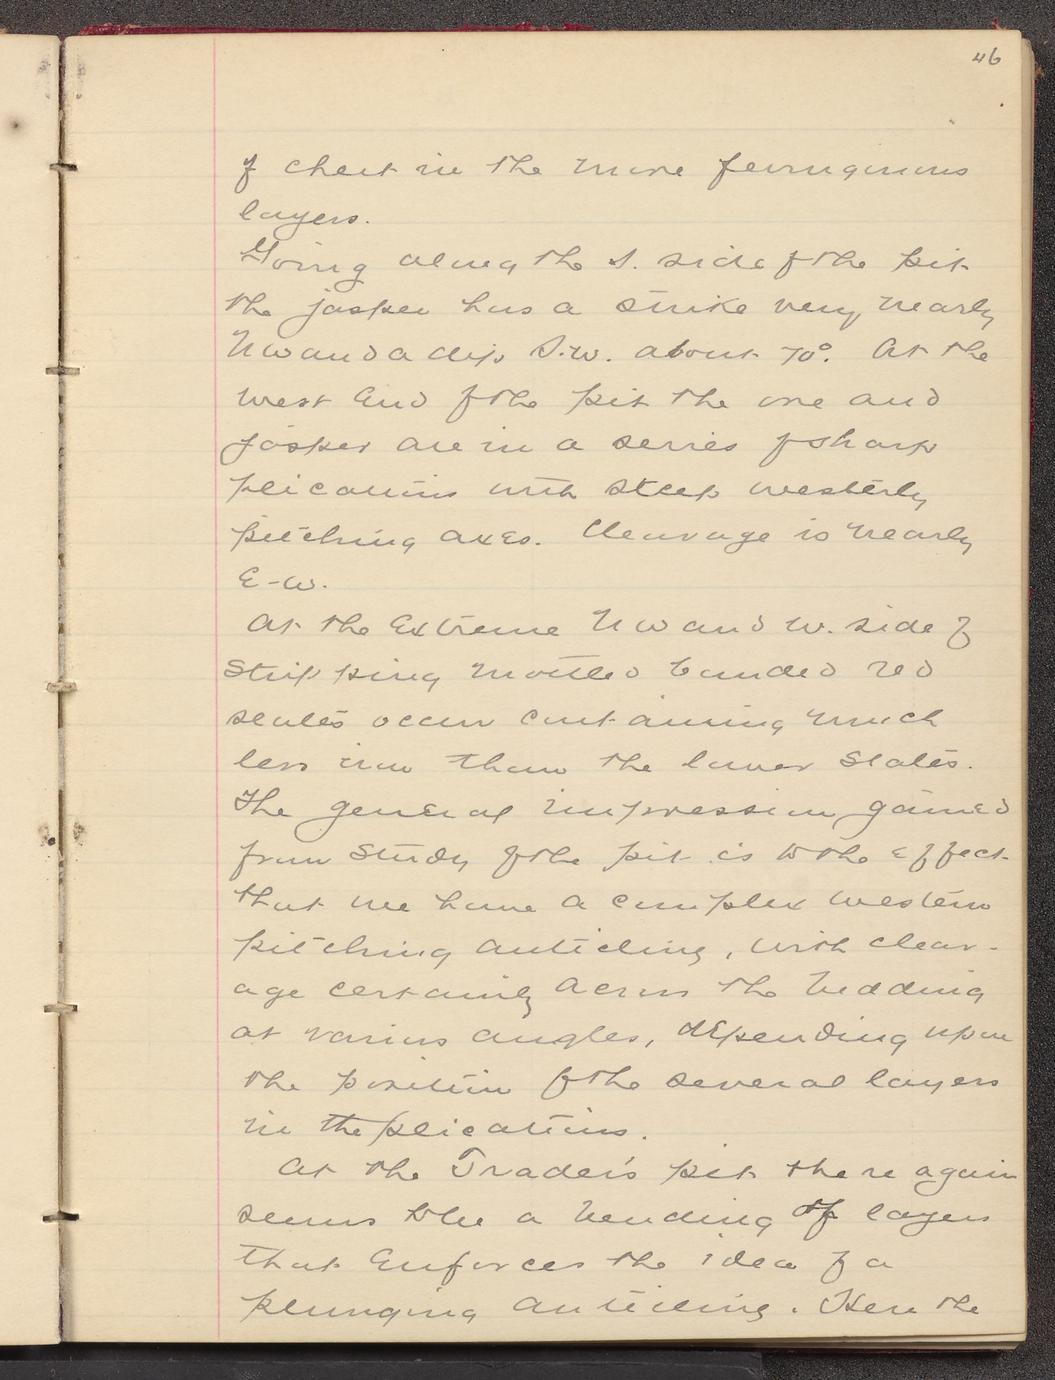 46
of chert in the more ferruginous
layers.
Going along the S. side of the pit
the jasper has a strike very nearly
NW and a dip S.W. about 70°. At the
west end of the pit the ore and
jasper are in a series of sharp
plications with steep westerly
pitching axes. Cleavage is nearly
E-W.
At the extreme NW and W. side of
stripping mottled banded red
slates occur containing much
less iron than the lower slates.
The general impression gained
from study of the pit is to the effect
that we have a complex western
pitching anticline, with cleav-
age certainly across the bedding
at various angles, depending upon
the position of the several layers
in the plications.
At the Trader's pit there again
seems to be a bending of layers
that enforces the idea of a
plunging anticline. Here the